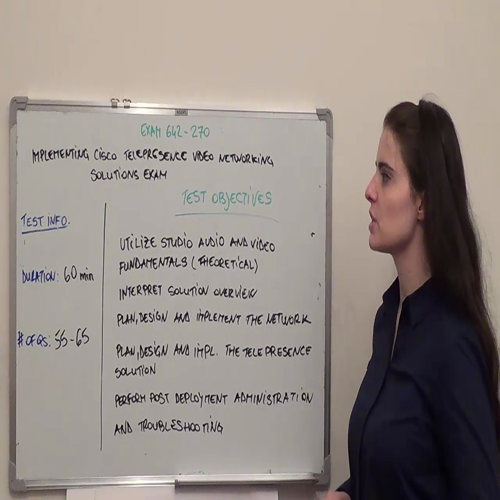 EXAM 642-270
IMPLEMENTING CISCO TELEPRESENCE VIDEO NETWORKING
SOLUTIONS EXAM
TEST OBJECTIVES
TEST INFO.
DURATION: 60 min
# OF QS: 55-65
UTILIZE STUDIO AUDIO AND VIDEO
FUNDAMENTALS (THEORETICAL)
INTERPRET SOLUTION OVERVIEW
PLAN, DESIGN AND IMPLEMENT THE NETWORK
PLAN, DESIGN AND IMPL. THE TELEPRESENCE
SOLUTION
PERFORM POST DEPLOYMENT ADMINISTRATION
AND TROUBLESHOOTING